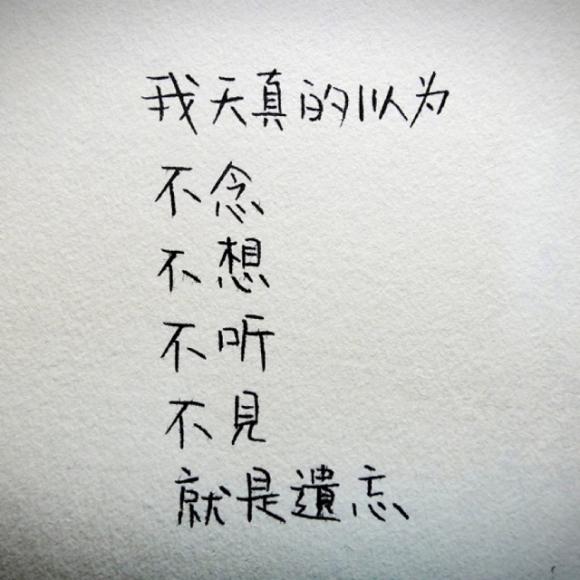 我天真的以为
不念
不想
不听
不見
就是遺忘